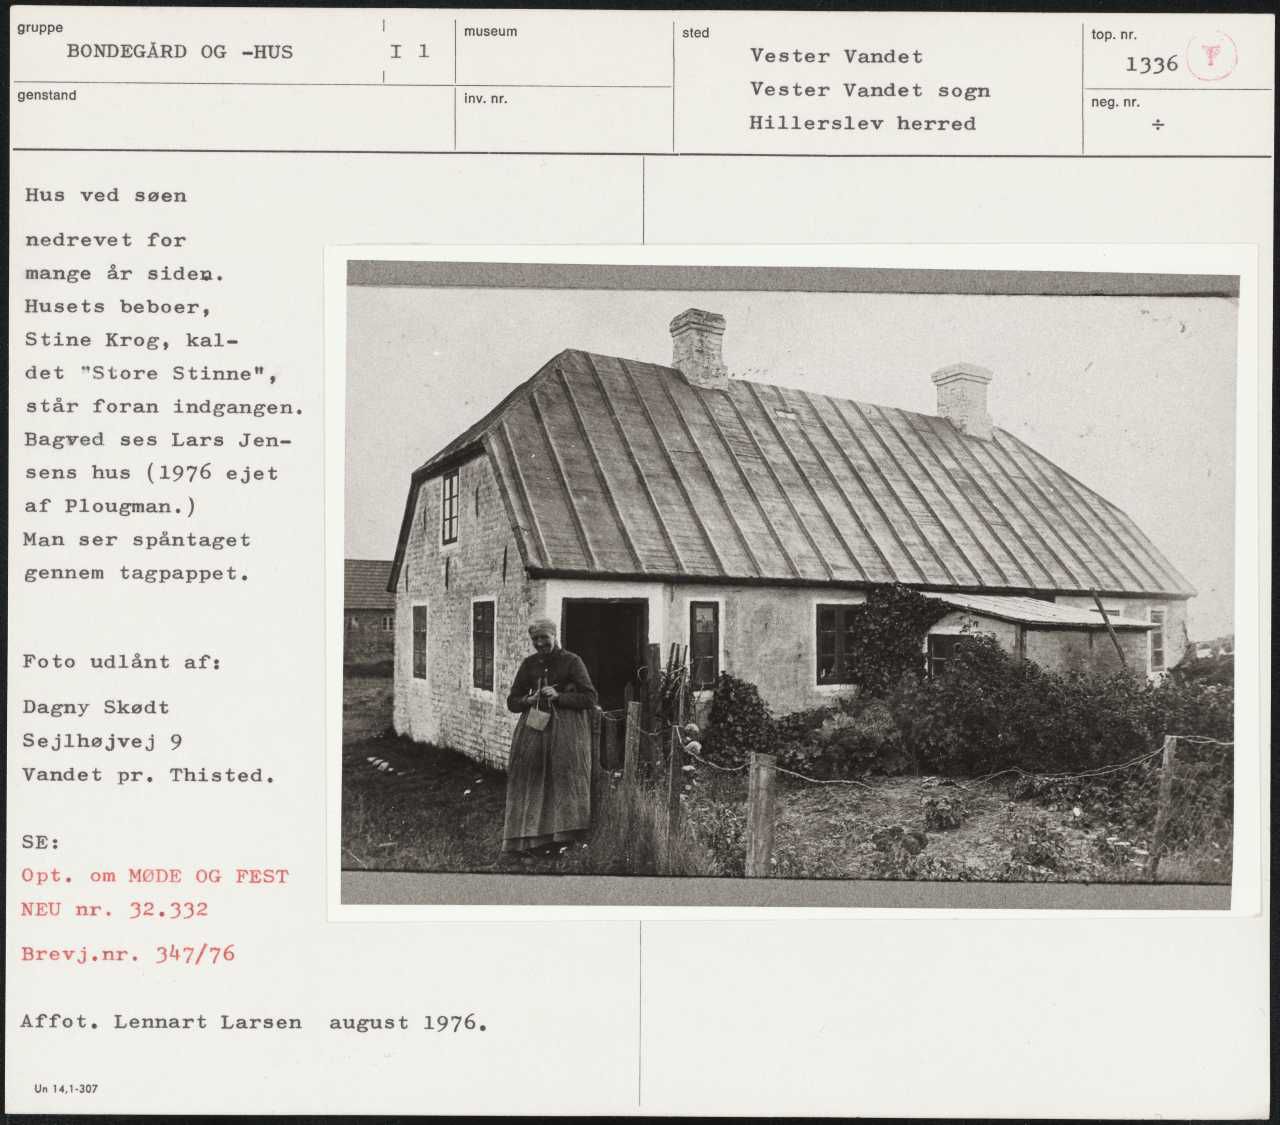 gruppe
BONDEGÅRD OG -HUS
I 1
museum
sted
Vester Vandet
Vester Vandet sogn
Hillerslev herred
top. nr.
1336
T
genstand
inv. nr.
neg. nr.
÷
Hus ved søen
nedrevet for
mange år siden.
Husets beboer,
Stine Krog, kal-
det "Store Stinne",
står foran indgangen.
Bagved ses Lars Jen-
sens hus (1976 ejet
af Plougman.)
Man ser spåntaget
gennem tagpappet.
Foto udlånt af:
Dagny Skødt
Sejlhøjvej 9
Vandet pr. Thisted.
SE:
Opt. om MØDE OG FEST
NEU nr. 32.332
Brevj.nr. 347/76
Affot. Lennart Larsen august 1976.
Un 14,1-307